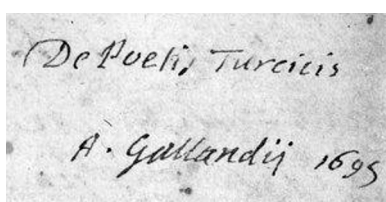 De Poetis Turcicis
A. Gallandij 1695